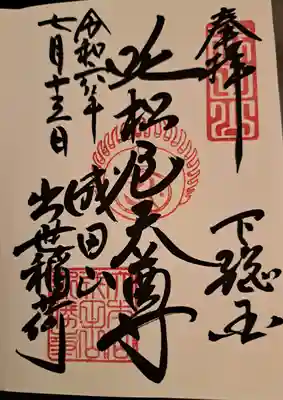 奉拝
下総国
吒枳尼天尊
成田山
出世稲荷
令和六年
七月十三日